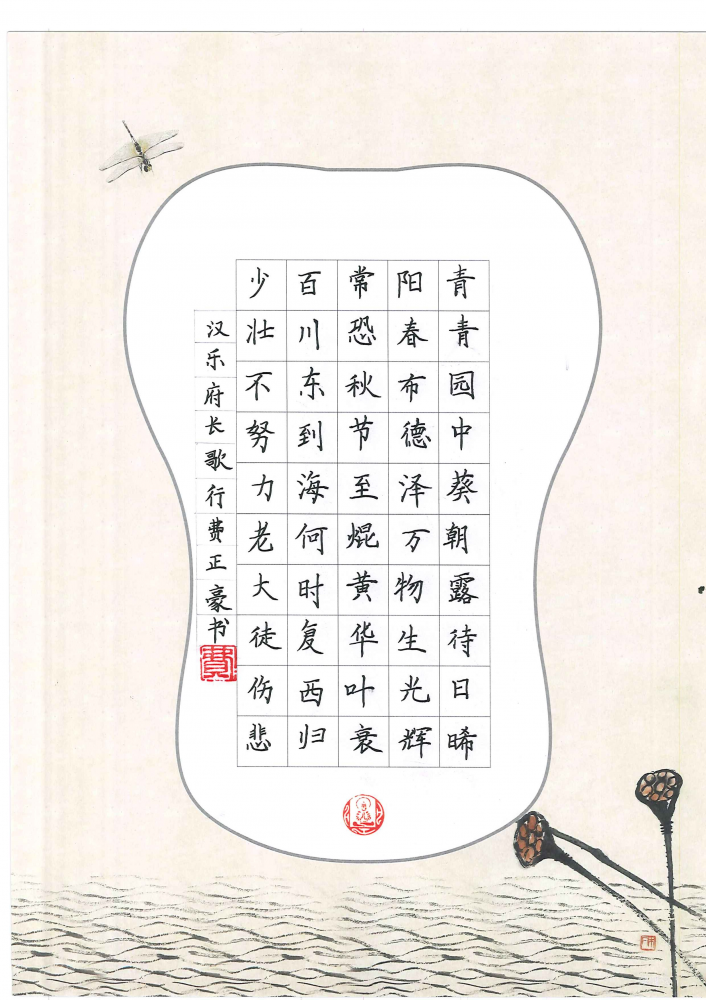 青青园中葵朝露待日晞
阳春布德泽万物生光辉
常恐秋节至焜黄华叶衰
百川东到海何时复西归
少壮不努力老大徒伤悲
汉乐府长歌行费正豪书
費